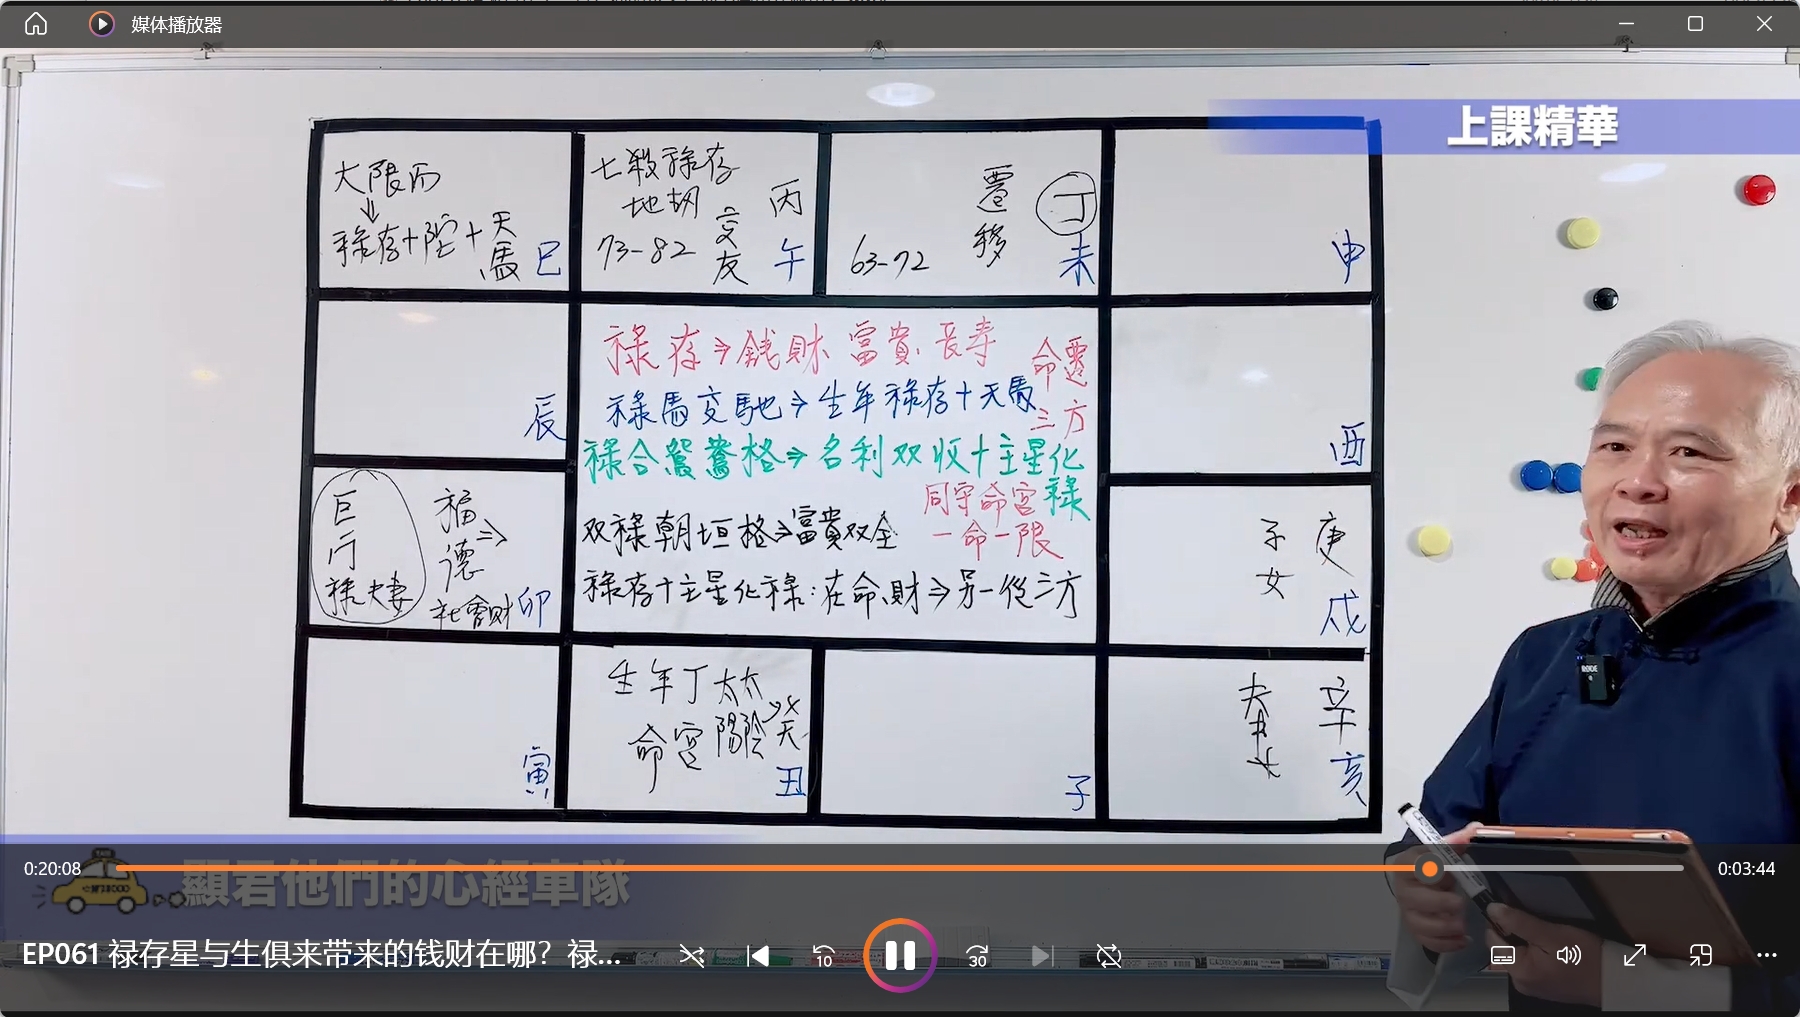 媒体播放器
上課精華
大限丙
⇓
祿存+陀+天馬
巳
七殺祿存
地劫
丙
73-82
交友
午
遷移
丁
63-72
未
申
辰
祿存⇒錢財 富貴 長寿
命遷
三方
祿馬交馳⇒生年祿存+天馬
祿合鴛鴦格⇒名利双收+主星化祿
同守命宮
双祿朝垣格⇒富貴双全
一命一限
祿存+主星化祿:在命、財⇒另一從三方
酉
巨門
祿夫妻
福德⇒
社會財
卯
子女
庚
戌
寅
生年丁
命宮
太陽
太陰
癸
天
丑
子
夫妻
辛
亥
0:20:08
0:03:44
顯君他們的心經車隊
EP061 禄存星与生俱来带来的钱财在哪？禄...
10
30
RODE